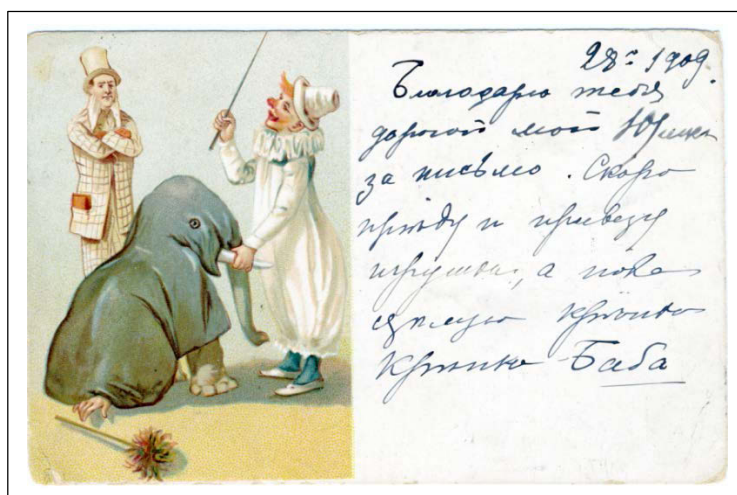 28го 1909.
Благодарю тебя
дорогой мой Юлик
за письмо. Скоро
приѣду и привезу
игрушки, а пока
цѣлую крѣпко
крѣпко Баба